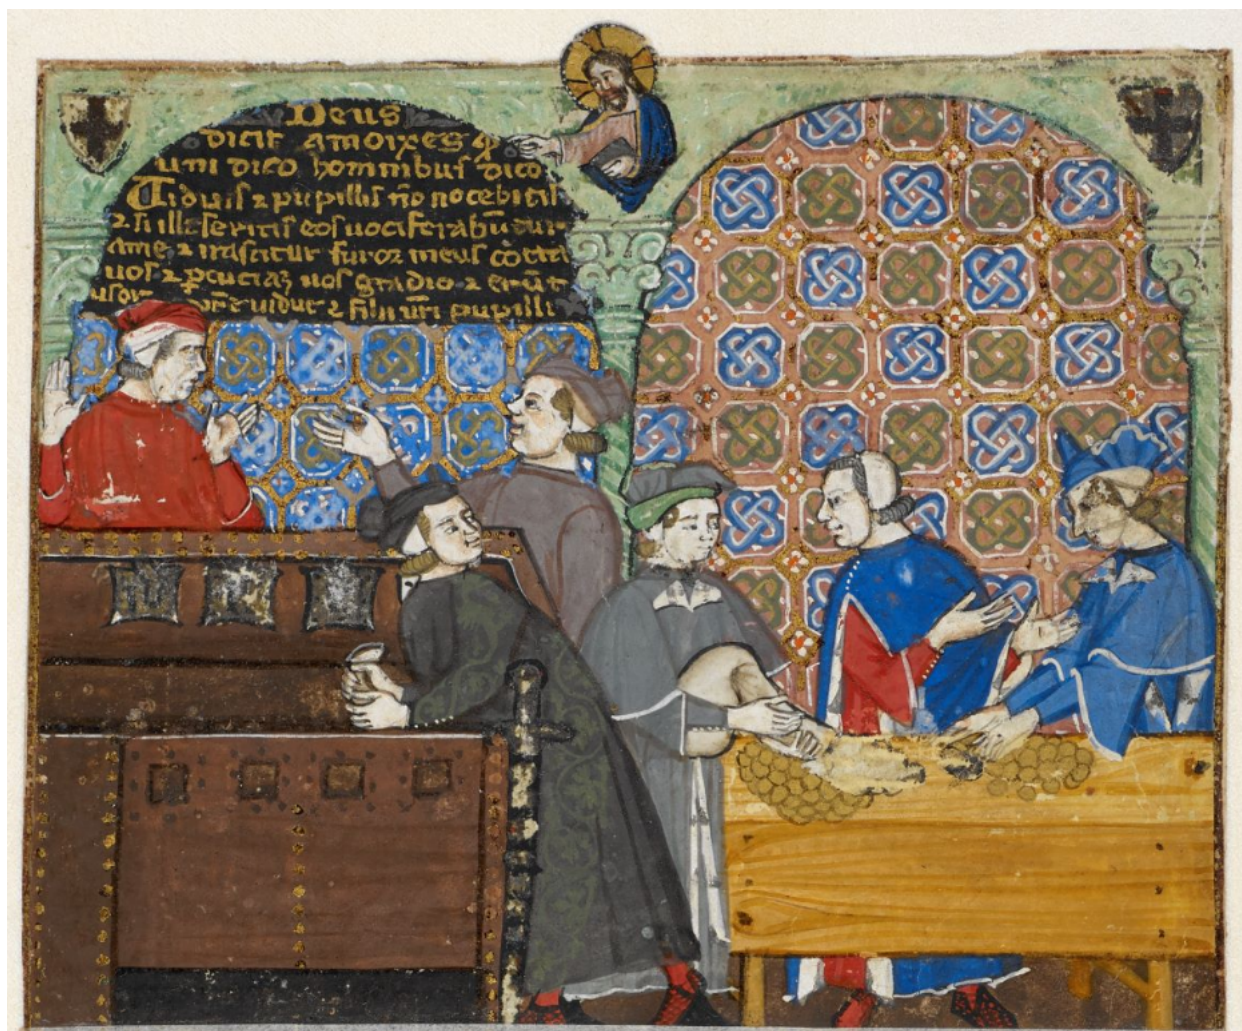 Deus
dicit amoixes q̄
uni dico hominibus dico
Uiduis ⁊ pupillis nō nocebitis
⁊ si illeseritis eos vociferabūtur
ame ⁊ irascitur furor meus cōtra
uos ⁊ ꝑcuciaꝫ uos gladio ⁊ erūt
uidue ⁊ filii uṝi pupilli